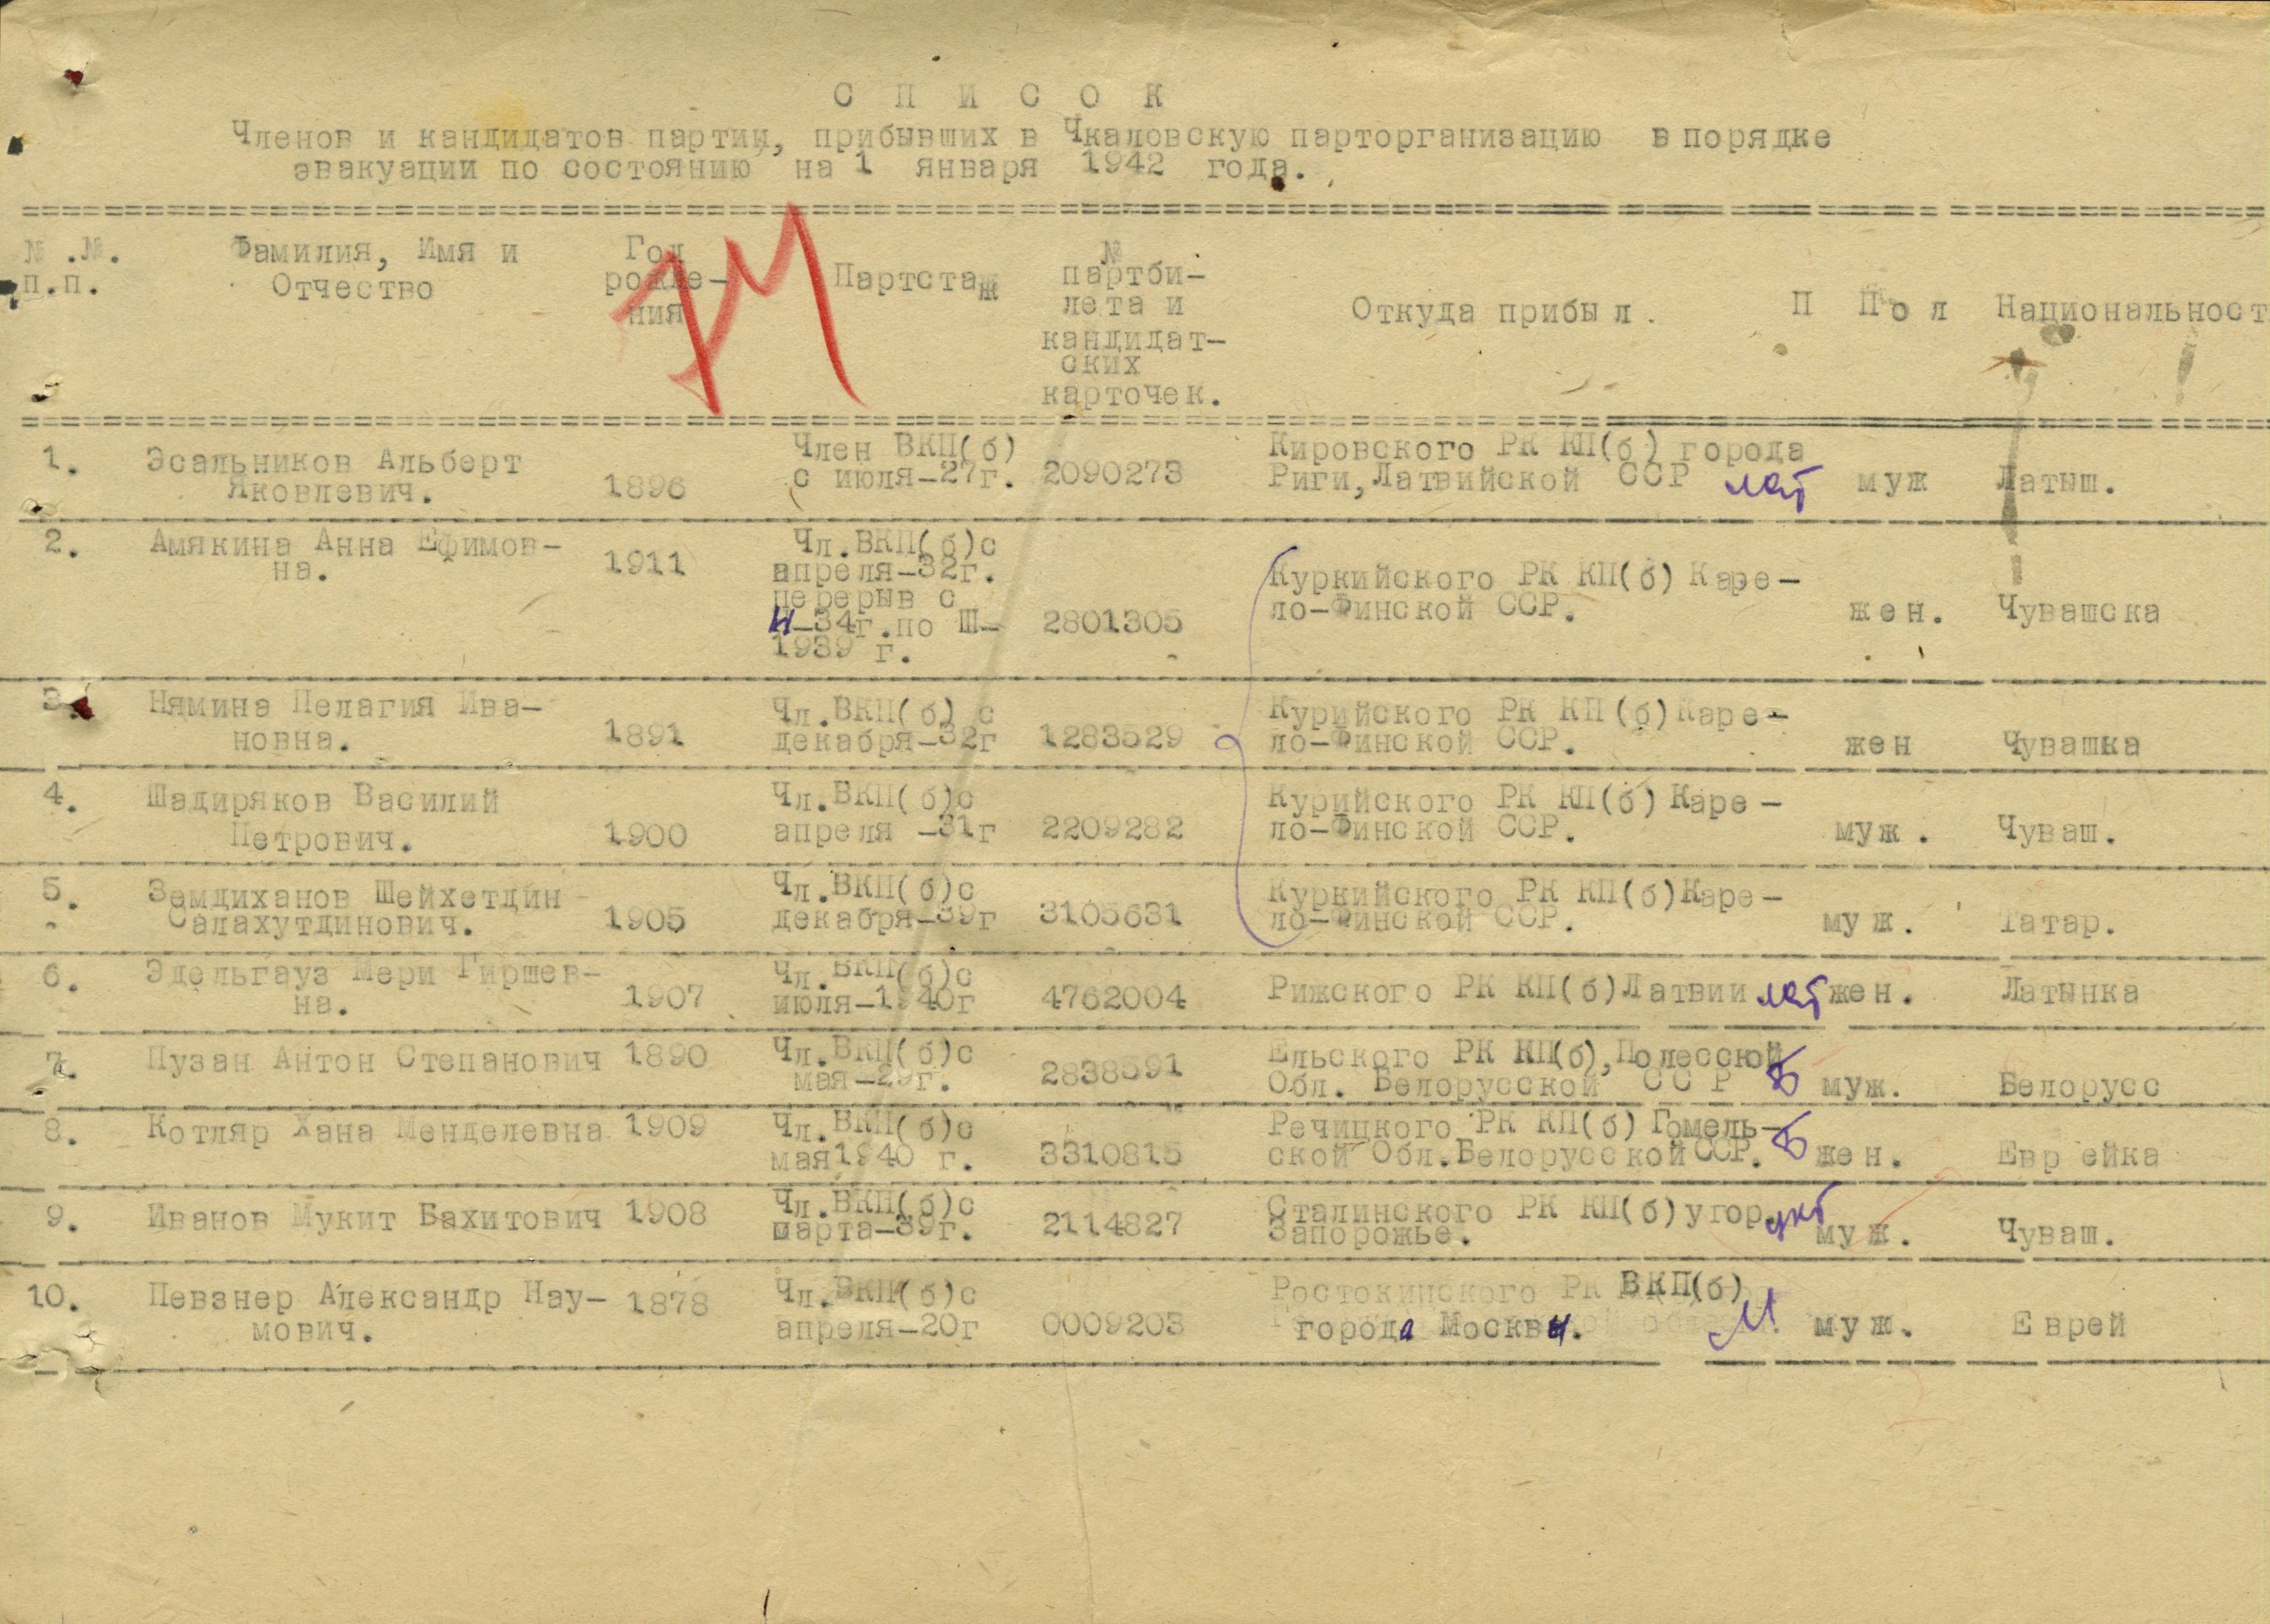 С П И С О К
Членов и кандидатов партии, прибывших в Чкаловскую парторганизацию в порядке
эвакуации по состоянию на 1 января 1942 года.
№.№. п.п. Фамилия, Имя и Отчество Год рожде-ния Партстаж № партби-лета и кандидат-ских карточек. Откуда прибыл. П Пол Национальност
1. Эсальников Альберт Яковлевич. 1896 Член ВКП(б) с июля-27г. 2090273 Кировского РК КП(б) города Риги, Латвийской ССР лат муж Латыш.
2. Амякина Анна Ефимов-на. 1911 Чл.ВКП(б)с апреля-32г. перерыв с -34г.по Ш-1939 г. 2801305 Куркийского РК КП(б) Каре-ло-Финской ССР. жен. Чувашска
3. Нямина Пелагия Ива-новна. 1891 Чл.ВКП(б) с декабря-32г 1283529 Курийского РК КП(б)Каре-ло-Финской ССР. жен Чувашка
4. Шадиряков Василий Петрович. 1900 Чл.ВКП(б)с апреля -31г 2209282 Курийского РК КП(б) Каре-ло-Финской ССР. муж. Чуваш.
5. Земдиханов Шейхетдин Салахутдинович. 1905 Чл.ВКП(б)с декабря-39г 3105631 Куркийского РК КП(б)Каре-ло-Финской ССР. муж. Татар.
6. Эдельгауз Мери Гиршев-на. 1907 Чл.ВКП(б)с июля-1940г 4762004 Рижского РК КП(б)Латвии лат жен. Латынка
7. Пузан Антон Степанович 1890 Чл.ВКП(б)с мая-29г. 2838591 Ельского РК КП(б),Полесской Обл. Белорусской ССР Б муж. Белорусс
8. Котляр Хана Менделевна 1909 Чл.ВКП(б)с мая1940 г. 3310815 Речицкого РК КП(б) Гомель-ской Обл.Белорусской ССР. Б жен. Еврейка
9. Иванов Мукит Бахитович 1908 Чл.ВКП(б)с марта-39г. 2114827 Сталинского РК КП(б)угор. Запорожье. укб муж. Чуваш.
10. Певзнер Александр Нау-мович. 1878 Чл.ВКП(б)с апреля-20г 0009203 Ростокинского РК ВКП(б) города Москвы. М муж. Еврей